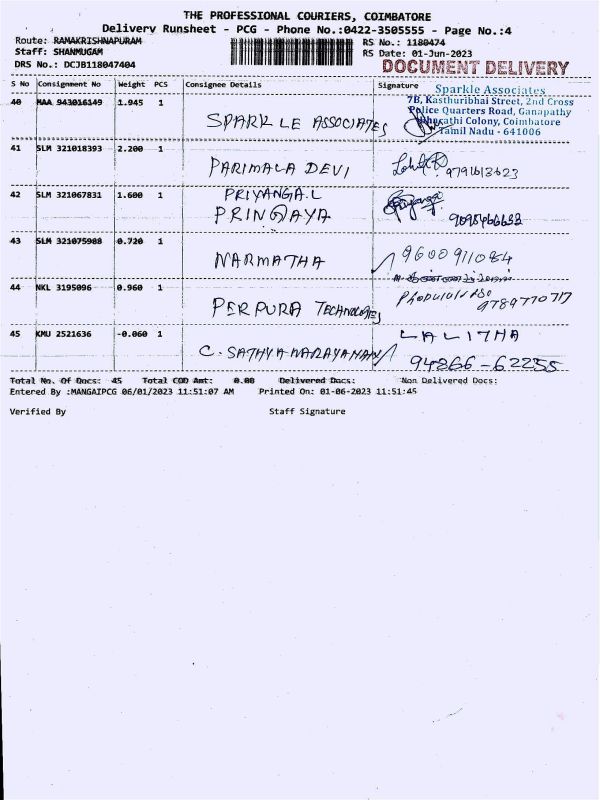 THE PROFESSIONAL COURIERS, COIMBATORE
Delivery Runsheet - PCG - Phone No.:0422-3505555 - Page No.:4
Route: RAMAKRISHNAPURAM
RS No.: 1180474
Staff: SHANMUGAM
RS Date: 01-Jun-2023
DRS No.: DCJB118047404
DOCUMENT DELIVERY
S No Consignment No Weight PCS Consignee Details Signature
Sparkle Associates
7B, Kasthuribhai Street, 2nd Cross
Police Quarters Road, Ganapathy
Bharathi Colony, Coimbatore
Tamil Nadu - 641006
40 MAA 943016149 1.945 1
SPARKLE ASSOCIATES
41 SLM 321018393 2.200 1
PARIMALA DEVI
9791613623
42 SLM 321067831 1.600 1
PRIYANGA.L
PRINGAYA
43 SLM 321075988 0.720 1
NARMATHA
9600911084
44 NKL 3195096 0.960 1
PERPURA TECHNOLOGIES
9789770717
45 KMU 2521636 -0.060 1
C. SATHYANARAYANAN
LALITHA
94866-62255
Total No. Of Docs: 45 Total COD Amt: 0.00 Delivered Docs: Non Delivered Docs:
Entered By :MANGAIPCG 06/01/2023 11:51:07 AM Printed On: 01-06-2023 11:51:45
Verified By Staff Signature